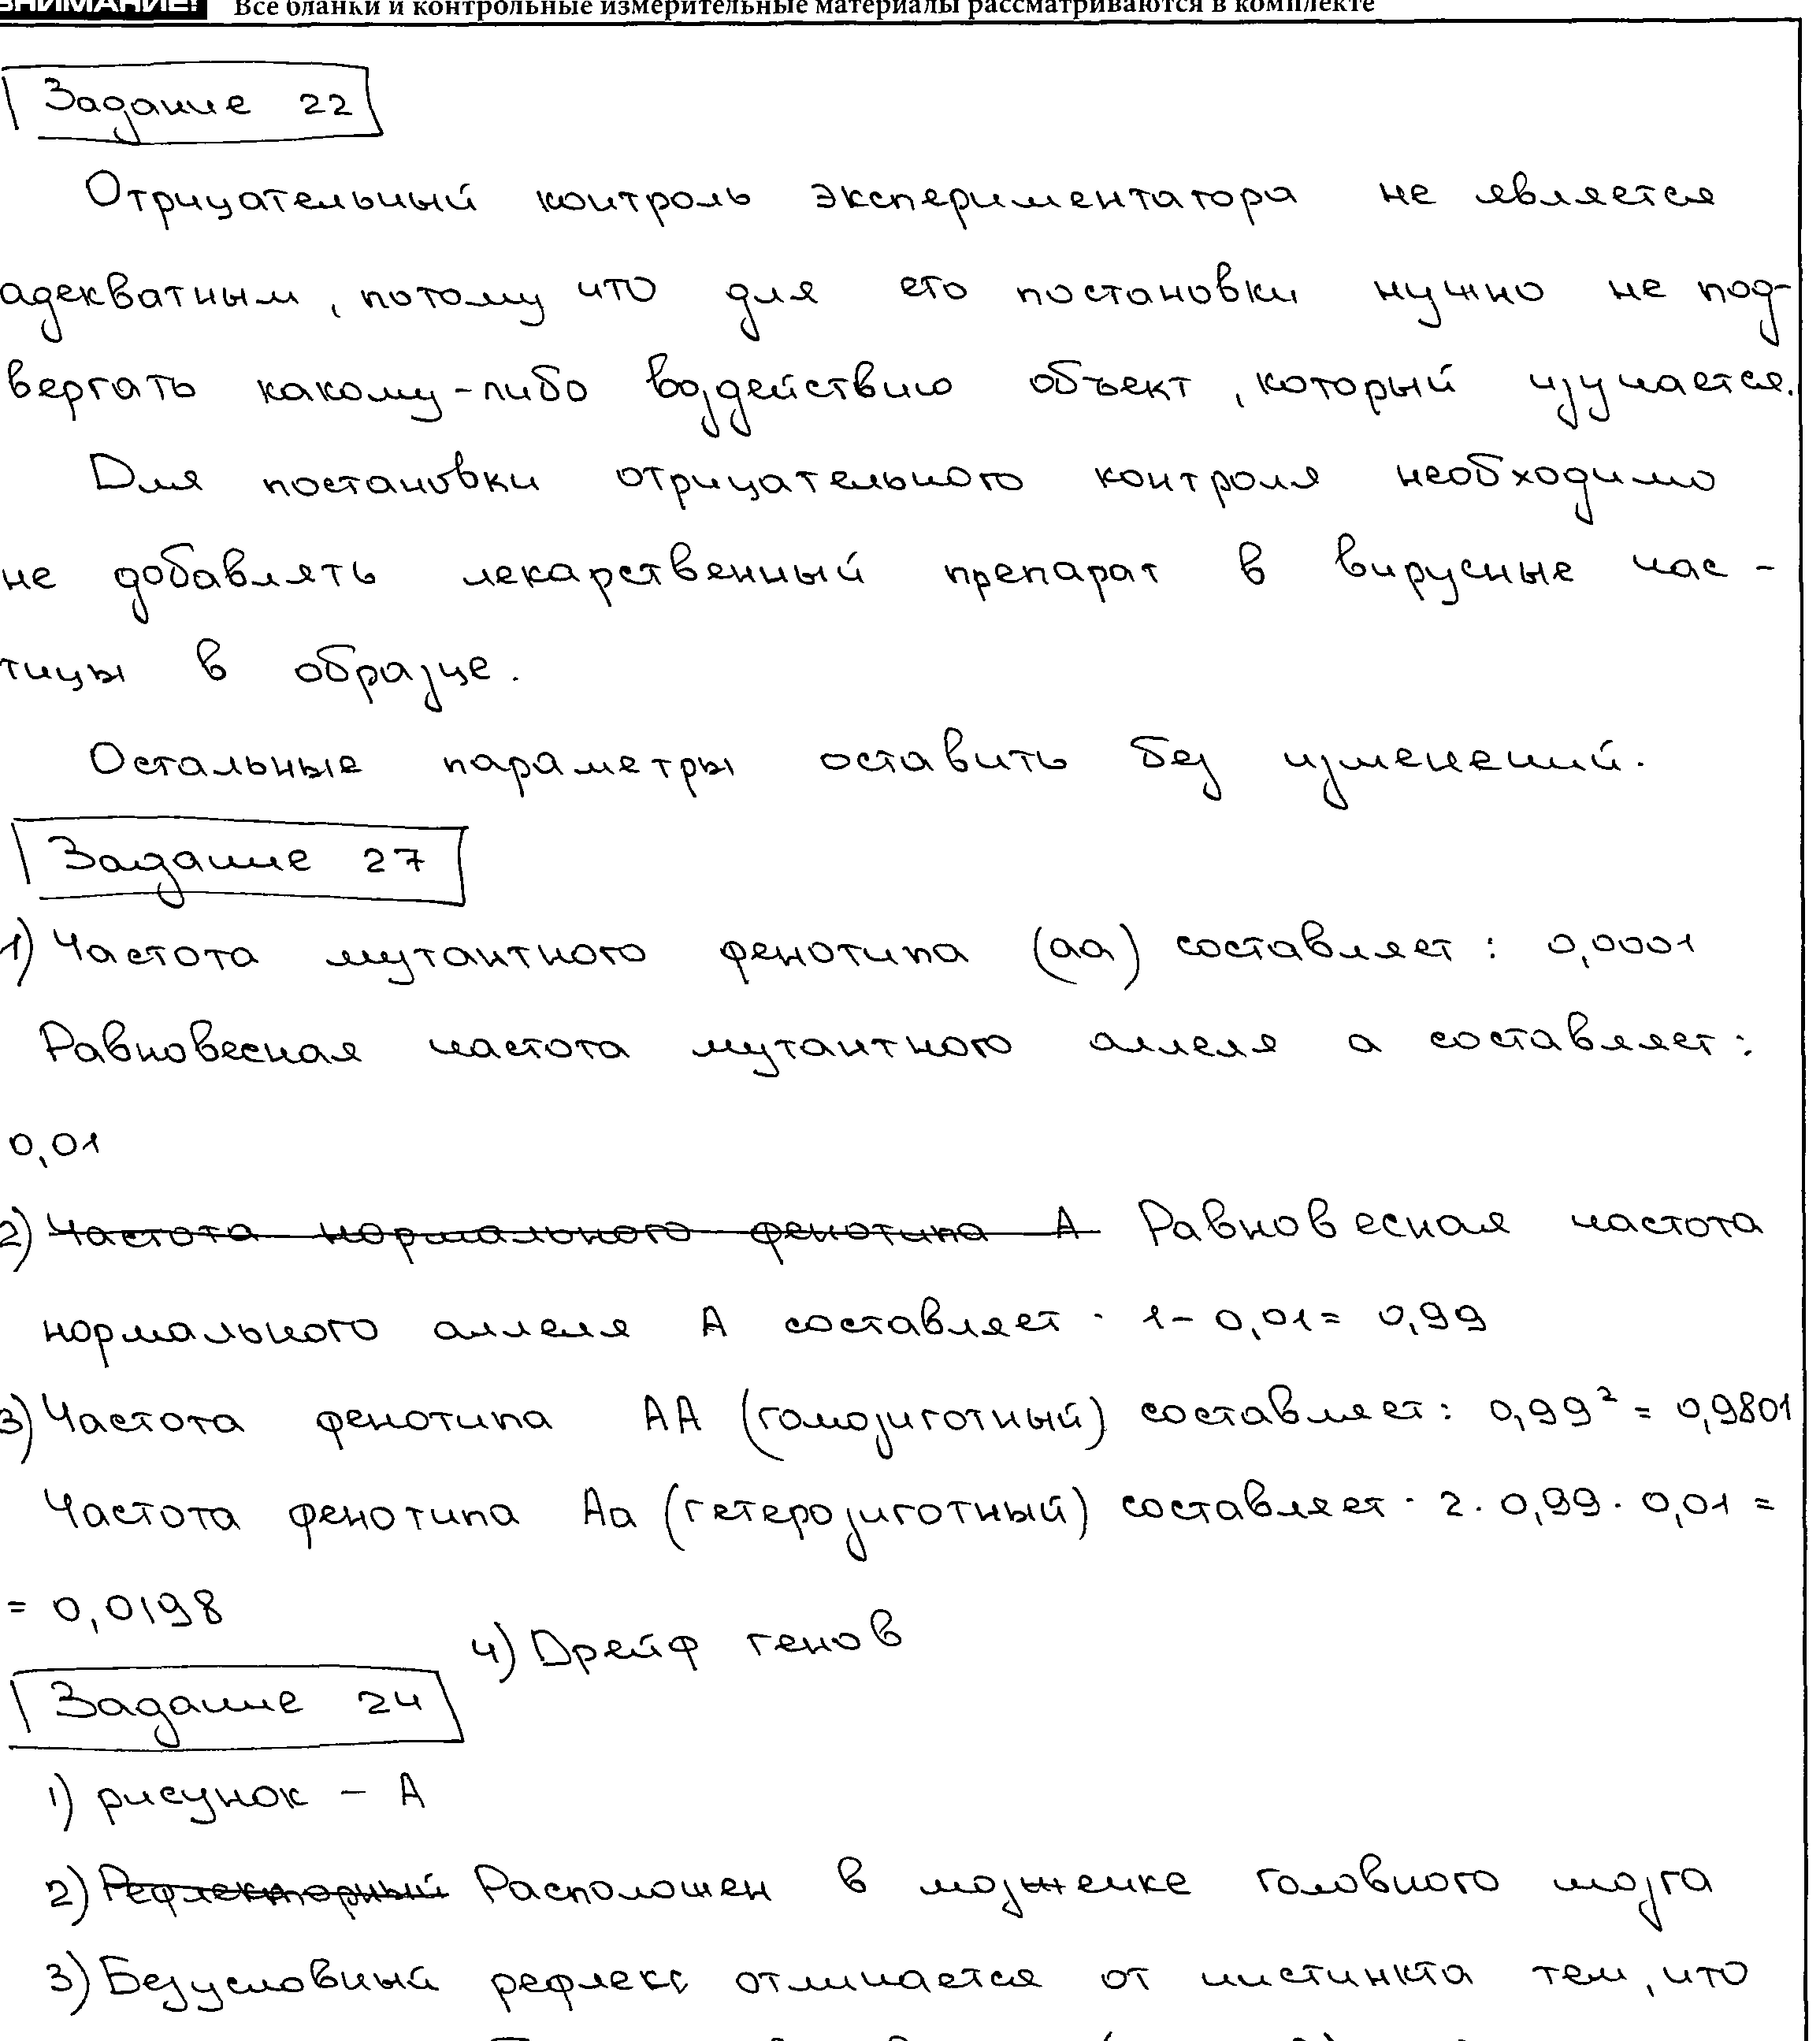 ВНИМАНИЕ! Все бланки и контрольные измерительные материалы рассматриваются в комплекте
Задание 22
Отрицательный контроль экспериментатора не является
адекватным, потому что для его постановки нужно не под-
вергать какому-либо воздействию объект, который изучается.
Для постановки отрицательного контроля необходимо
не добавлять лекарственный препарат в вирусные час-
тицы в образце.
Остальные параметры оставить без изменений.
Задание 27
1) Частота мутантного фенотипа (аа) составляет: 0,0001
Равновесная частота мутантного аллеля а составляет:
0,01
2) Частота нормального фенотипа А Равновесная частота
нормального аллеля А составляет: 1 - 0,01 = 0,99
3) Частота фенотипа АА (гомозиготный) составляет: 0,99² = 0,9801
Частота фенотипа Аа (гетерозиготный) составляет: 2 · 0,99 · 0,01 =
= 0,0198
4) Дрейф генов
Задание 24
1) рисунок - А
2) Рефлекторный Расположен в мозжечке головного мозга
3) Безусловный рефлекс отличается от инстинкта тем, что